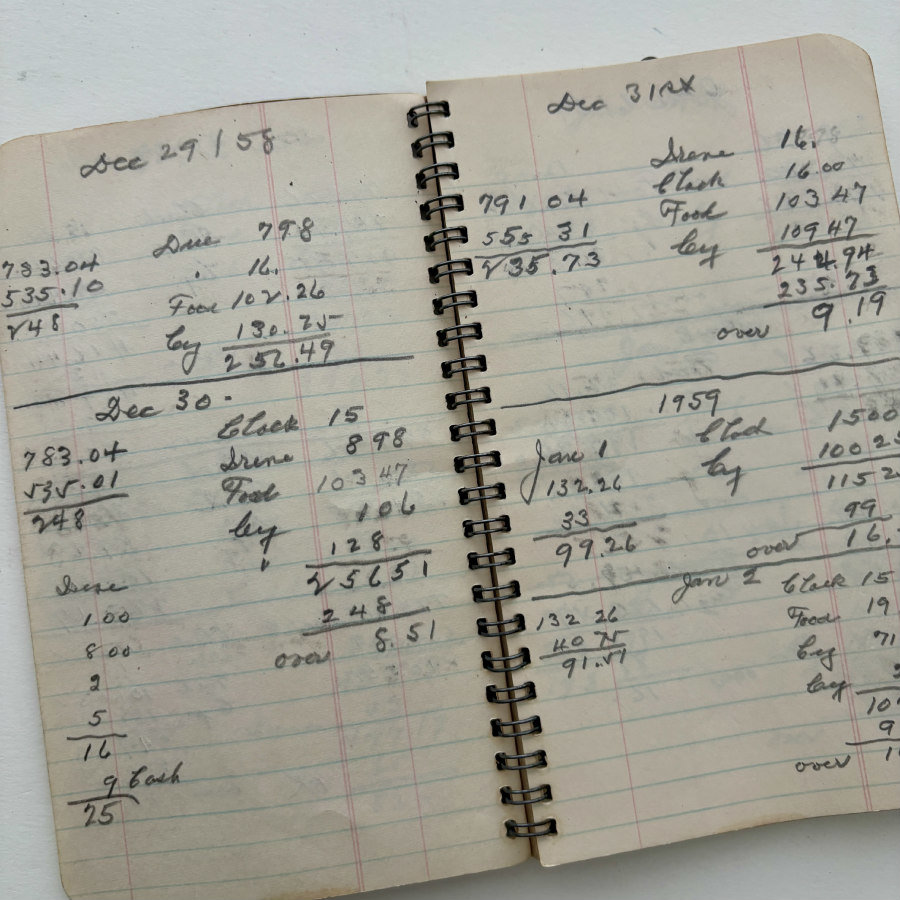 Dec 29 / 58
783.04
535.10
248
Due 798
" 16.
Food 102.26
Cey 130.25
256.49
Dec 30 -
783.04
535.01
248
Clock 15
Irene 898
Food 103 47
Cey 106
" 128
256 51
248
over 8.51
Irene
1 00
8 00
2
5
16
9 Cash
25
Dec 31
791 04
555 31
235.73
Irene 16.
Clock 16.00
Food 103 47
Cey 109 47
244.94
235.73
over 9.19
1959
Jan 1
132.26
33
99.26
Clock 1500
Cey 100 25
115 2
99
over 16.
Jan 2
132 26
40 75
91.51
Clock 15
Food 19
Cey 71
Cey
10
9
over 1